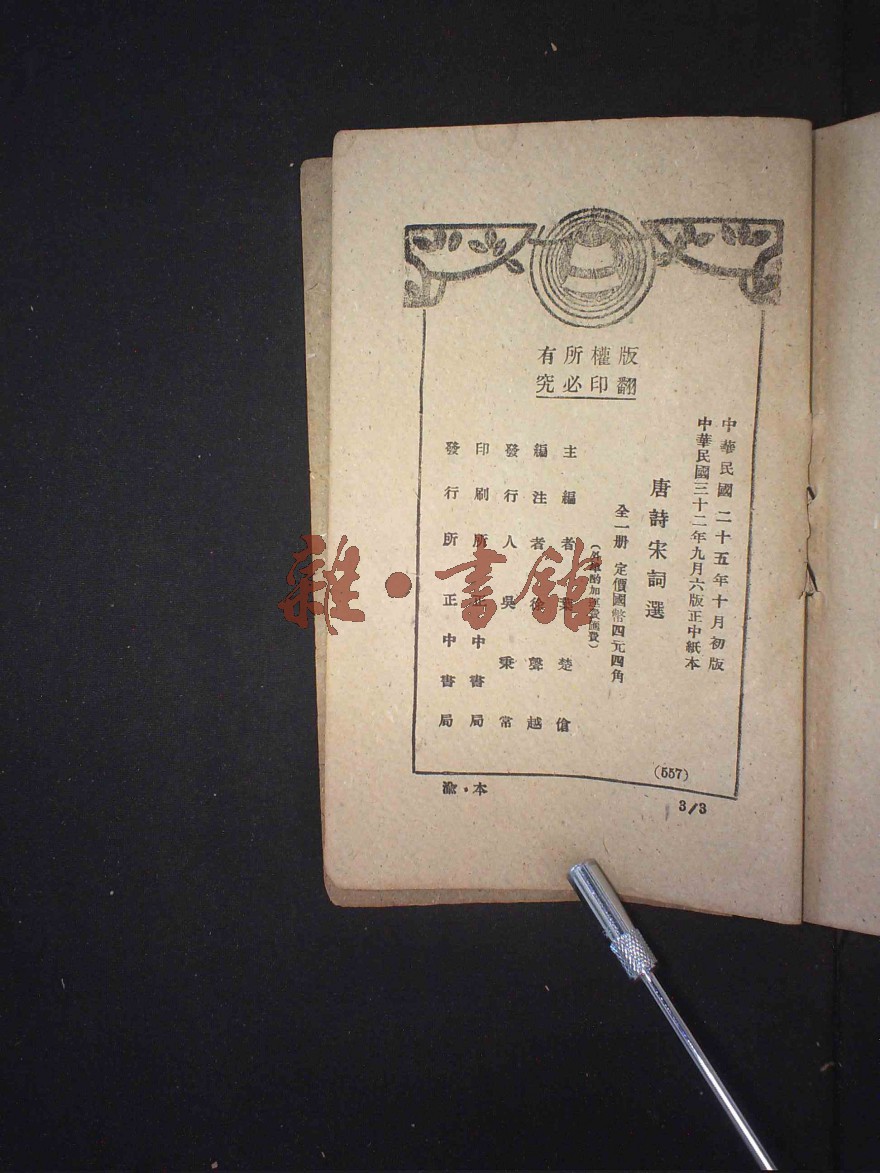 版權所有
翻印必究
中華民國二十五年十月初版
中華民國三十二年九月六版正中紙本
唐詩宋詞選
全一册 定價國幣四元四角
(外埠酌加運費匯費)
主編者 葉楚傖
編注者 徐聲越
發行人 吳秉常
印刷所 正中書局
發行所 正中書局
(557)
渝·本
3/3
雜·書館